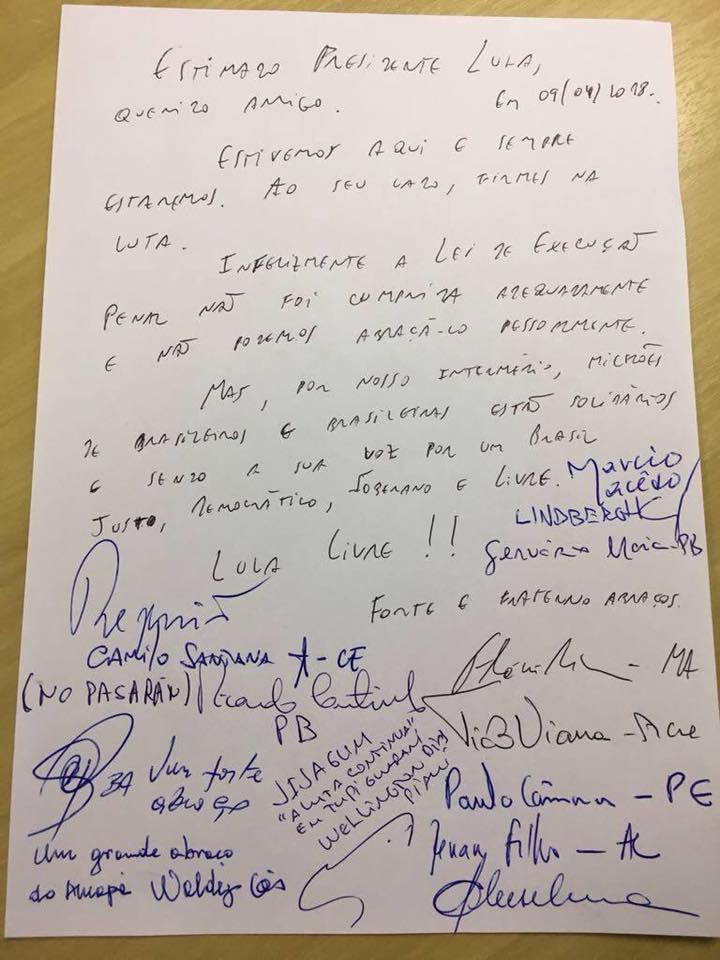 ESTIMADO PRESIDENTE LULA,
QUERIDO AMIGO. Em 09/04/2018.
ESTIVEMOS AQUI E SEMPRE
ESTAREMOS. AO SEU LADO, FIRMES NA
LUTA.
INFELIZMENTE A LEI DE EXECUÇÃO
PENAL NÃO FOI CUMPRIDA ADEQUADAMENTE
E NÃO PODEMOS ABRAÇÁ-LO PESSOALMENTE.
MAS, POR NOSSO INTERMÉDIO, MILHÕES
DE BRASILEIROS E BRASILEIRAS ESTÃO SOLIDÁRIOS
E SENDO A SUA VOZ POR UM BRASIL
JUSTO, DEMOCRÁTICO, SOBERANO E LIVRE.
Marcio
Macêdo
LINDBERGH
Gervásio Maia-PB
LULA LIVRE !!
FORTE E FRATERNO ABRAÇOS.
Requião
CAMILO SANTANA - CE
Flávio Dino - MA
(NO PASARÁN) Ricardo Coutinho
PB
Tião Viana - Acre
BA Um forte
abraço
JIJAGUM
"A LUTA CONTINUA"
EM TUPI GUARANI
WELLINGTON DIAS
PIAUÍ
Paulo Câmara - PE
Renan Filho - AL
Um grande abraço
do Amapá Waldez Góes